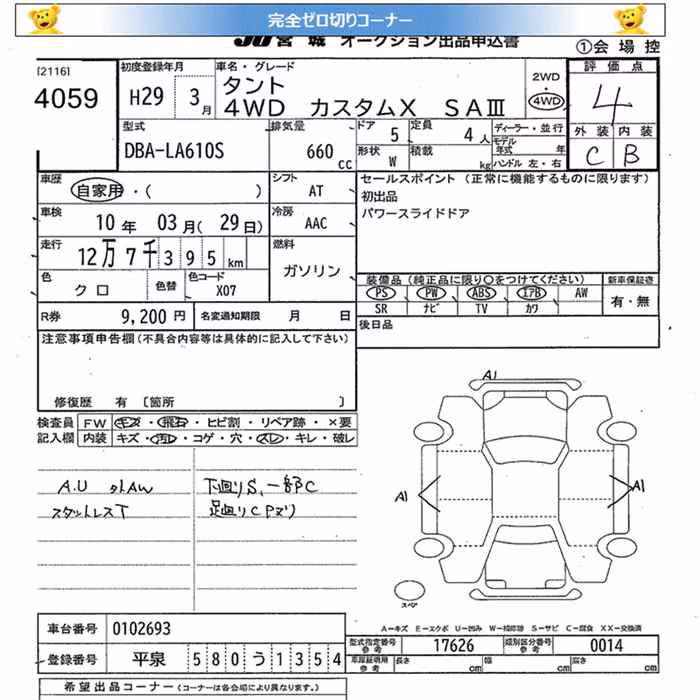 完全ゼロ切りコーナー
JU宮城 オークション出品申込書
①会場控
[2116]
4059
初度登録年月
H29 3月
車名・グレード
タント
4WD カスタムX SAⅢ
2WD
・
4WD
評価点
4
外装 内装
C B
型式
DBA-LA610S
排気量
660 cc
ドア 5
定員 4人
形状 W
積載 kg
ディーラー・並行
モデル年式 年式
ハンドル 左・右
車歴
自家用・( )
シフト
AT
セールスポイント (正常に機能するものに限ります)
初出品
パワースライドドア
車検
10年 03月(29日)
冷房
AAC
走行
12万7千395km
燃料
ガソリン
色
クロ
色替
色コード
X07
装備品 (純正品に限り○をつけてください)
新車保証書
PS PW ABS エアB AW
SR ナビ TV カワ
有・無
R券 9,200円
名変通知期限 月 日
後日品
注意事項申告欄 (不具合内容等は具体的に記入して下さい)
修復歴 有 〔箇所 〕
検査員
記入欄
FW キズ・飛石・ヒビ割・リペア跡・×要
内装 キズ・汚れ・コゲ・穴・スレ・キレ・破レ
A.U 外AW
スタットレスT
下廻りS、一部C
足廻りCPマリ
A1
A1
A1
スペア
A－キズ E－エクボ U－凹み W－補修跡 S－サビ C－腐食 XX－交換済
車台番号 0102693
登録番号 平泉 580う1354
型式指定番号 参考 17626
類別区分番号 参考 0014
車庫証明用 参考 長さ cm 幅 cm 高さ cm
希望出品コーナー (コーナーは各会場により異なります。)